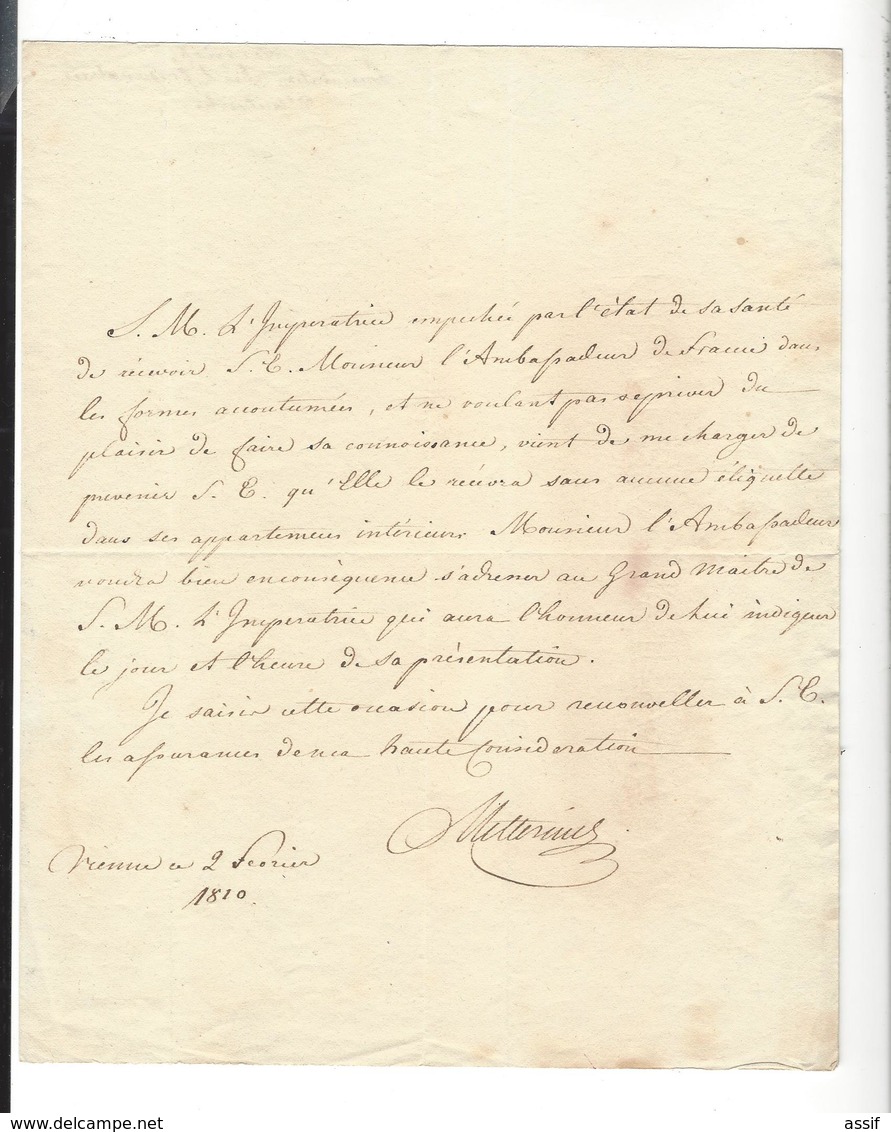 S. M. L'Imperatrice empechée par l'état de sa santé
de récevoir S. E. Monsieur l'Ambassadeur de France dans
les formes accoutumées, et ne voulant pas se priver du
plaisir de faire sa connoissance, vient de me charger de
prevenir S. E. qu'Elle le récevra sans aucune étiquette
dans ses appartemens intérieurs. Monsieur l'Ambassadeur
voudra bien en conséquence s'adresser au Grand Maitre de
S. M. L'Imperatrice qui aura l'honneur de Lui indiquer
le jour et l'heure de sa présentation.
Je saisis cette occasion pour renouveller à S. E.
les assurances de ma haute Consideration
Metternich
Vienne ce 2 Fevrier
1810.
assif